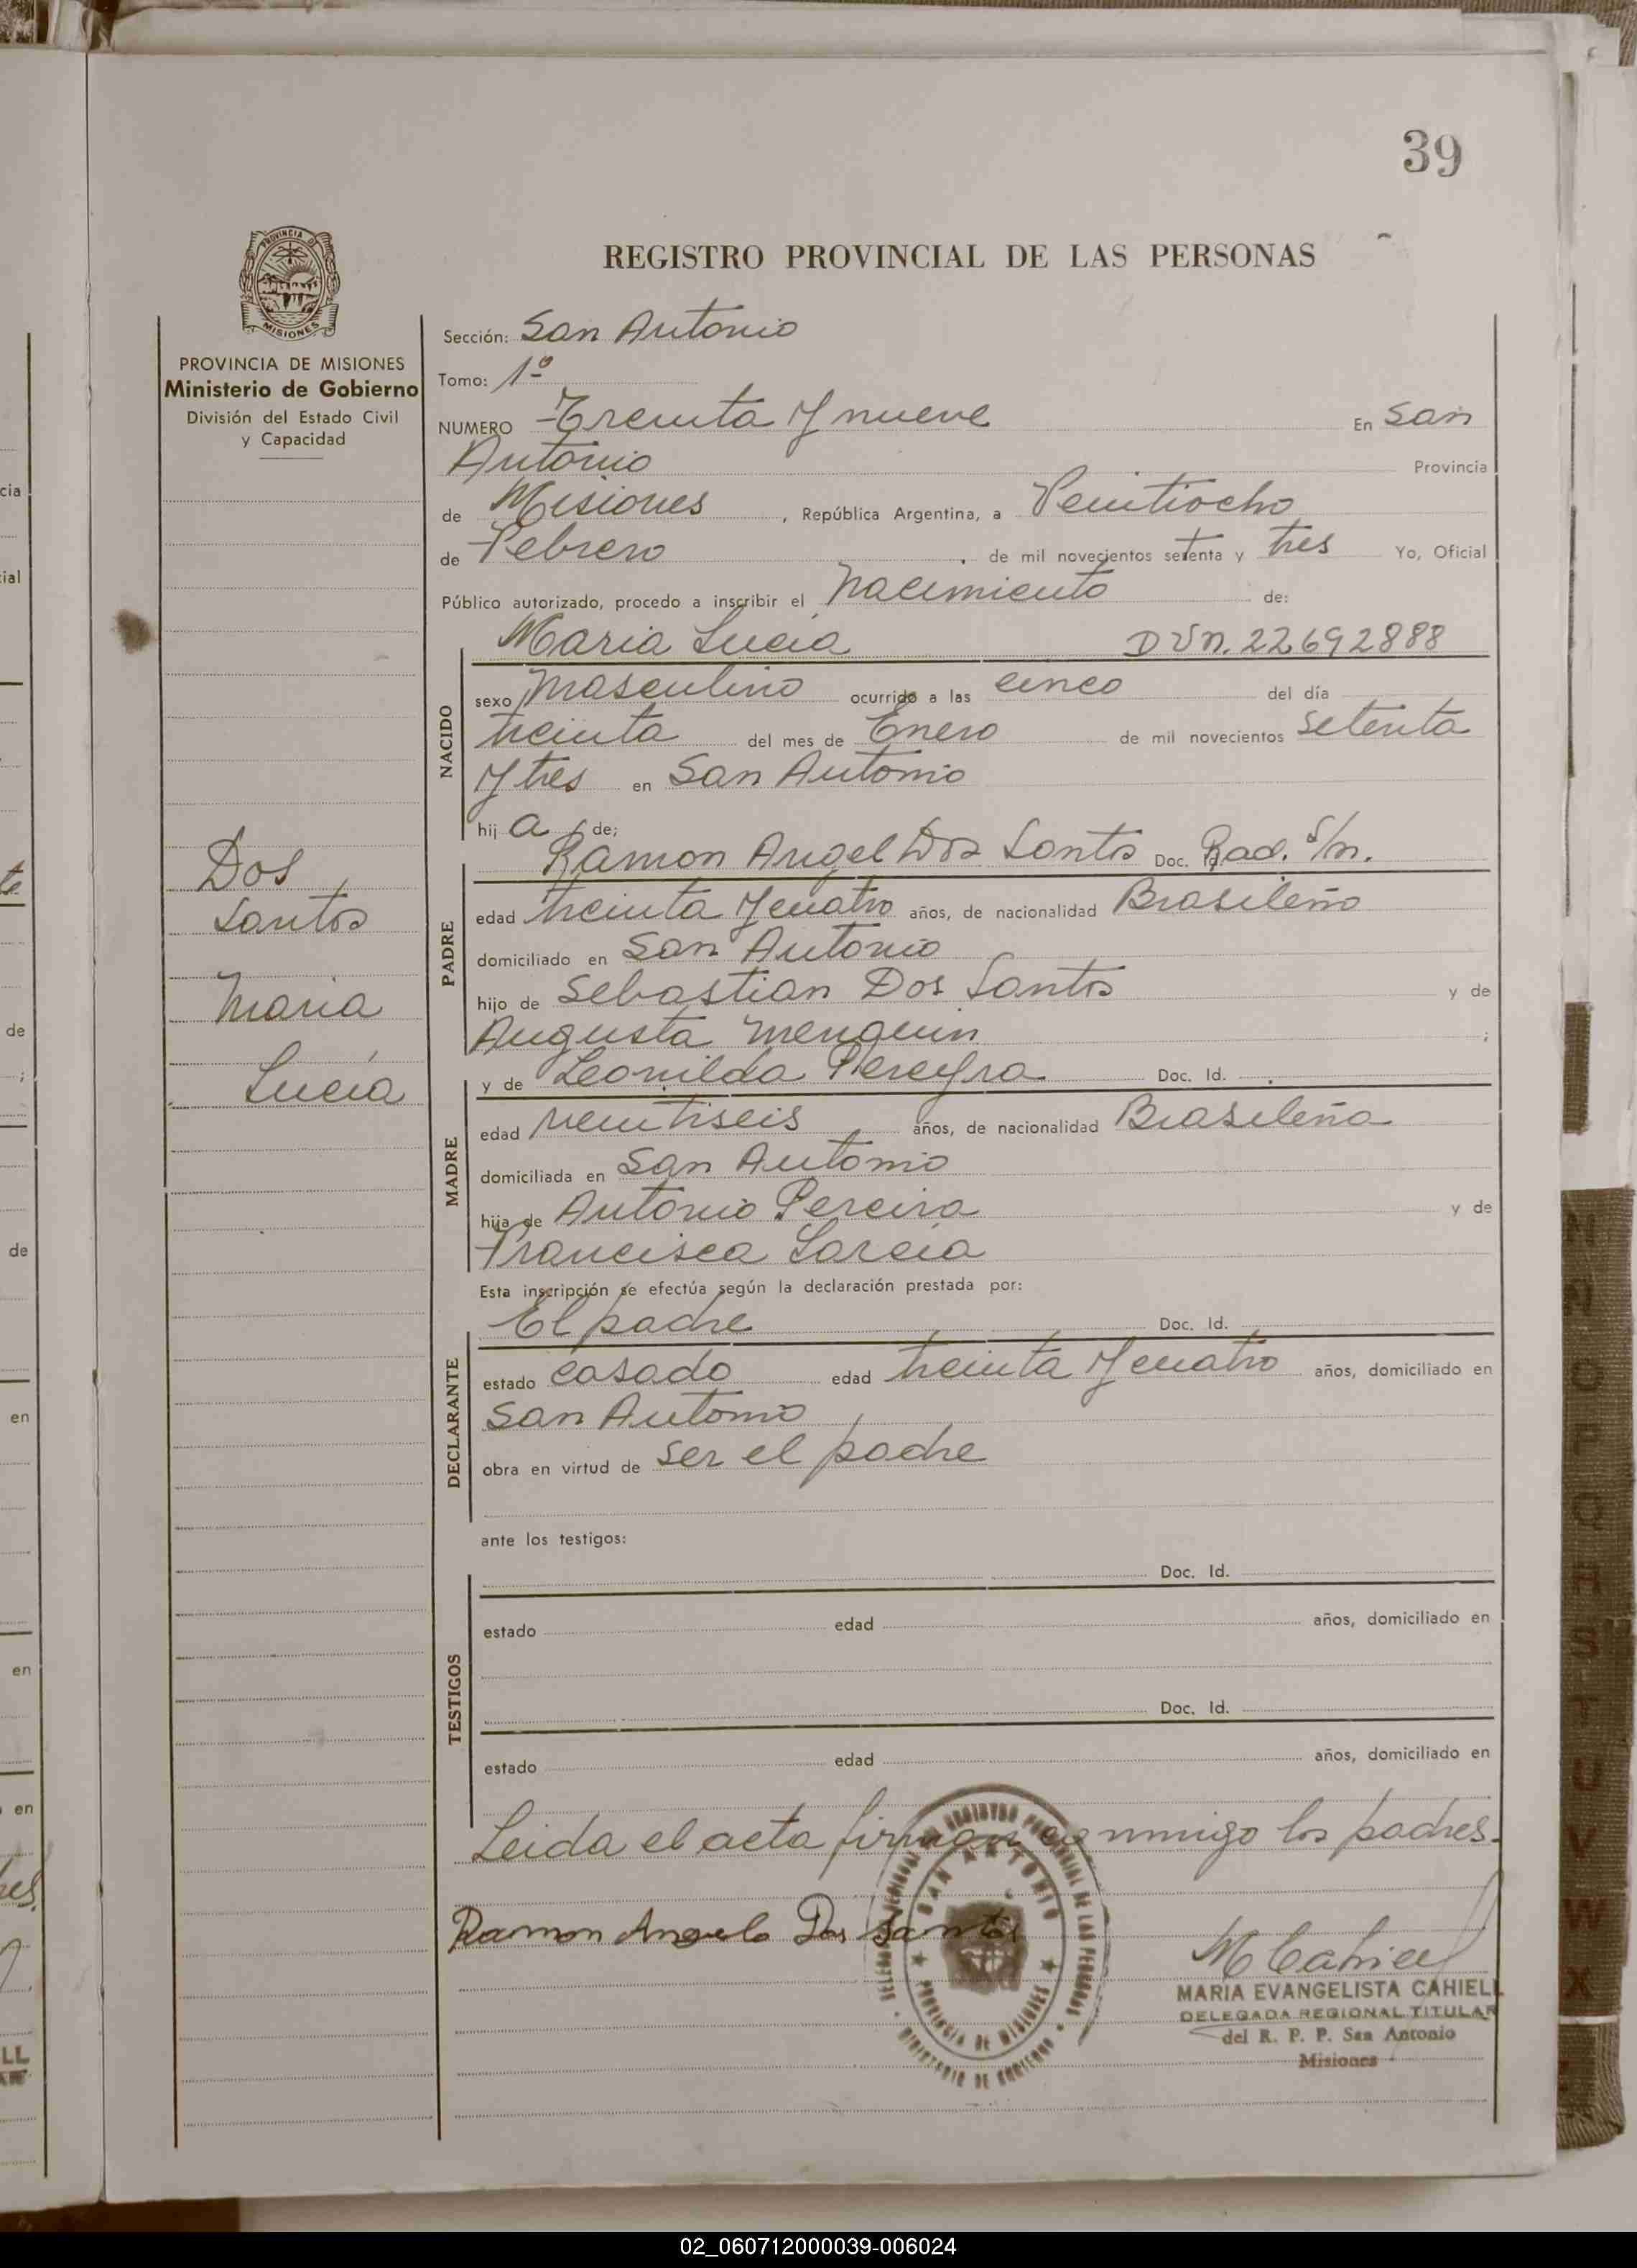 39
PROVINCIA DE
MISIONES
REGISTRO PROVINCIAL DE LAS PERSONAS
PROVINCIA DE MISIONES
Ministerio de Gobierno
División del Estado Civil
y Capacidad
Dos
Santos
Maria
Lucía
Sección: San Antonio
Tomo: 1º
NUMERO Treinta y nueve En San
Antonio Provincia
de Misiones, República Argentina, a Veintiocho
de Febrero de mil novecientos setenta y tres Yo, Oficial
Público autorizado, procedo a inscribir el Nacimiento de:
NACIDO
Maria Lucia DUn. 22692888
sexo Masculino ocurrido a las cinco del día
treinta del mes de Enero de mil novecientos setenta
y tres en San Antonio
hij a de;
PADRE
Ramon Angel Dos Santos Doc. Id. Rad. S/n.
edad treinta y cuatro años, de nacionalidad Brasileño
domiciliado en San Antonio
hijo de Sebastian Dos Santos y de
Augusta Menquin ;
MADRE
y de Leonilda Pereyra Doc. Id.
edad veintiseis años, de nacionalidad Brasileña
domiciliada en San Antonio
hija de Antonio Pereira y de
Francisca Garcia
Esta inscripción se efectúa según la declaración prestada por:
DECLARANTE
El padre Doc. Id.
estado casado edad treinta y cuatro años, domiciliado en
San Antonio
obra en virtud de ser el padre
ante los testigos:
TESTIGOS
Doc. Id.
estado edad años, domiciliado en
Doc. Id.
estado edad años, domiciliado en
Leida el acta firman conmigo los padres.
Ramon Angelo Dos Santos
SAN ANTONIO
PROVINCIA DE MISIONES
MINISTERIO DE GOBIERNO
M Cahiell
MARIA EVANGELISTA CAHIELL
DELEGADA REGIONAL TITULAR
del R. P. P. San Antonio
Misiones
02_060712000039-006024